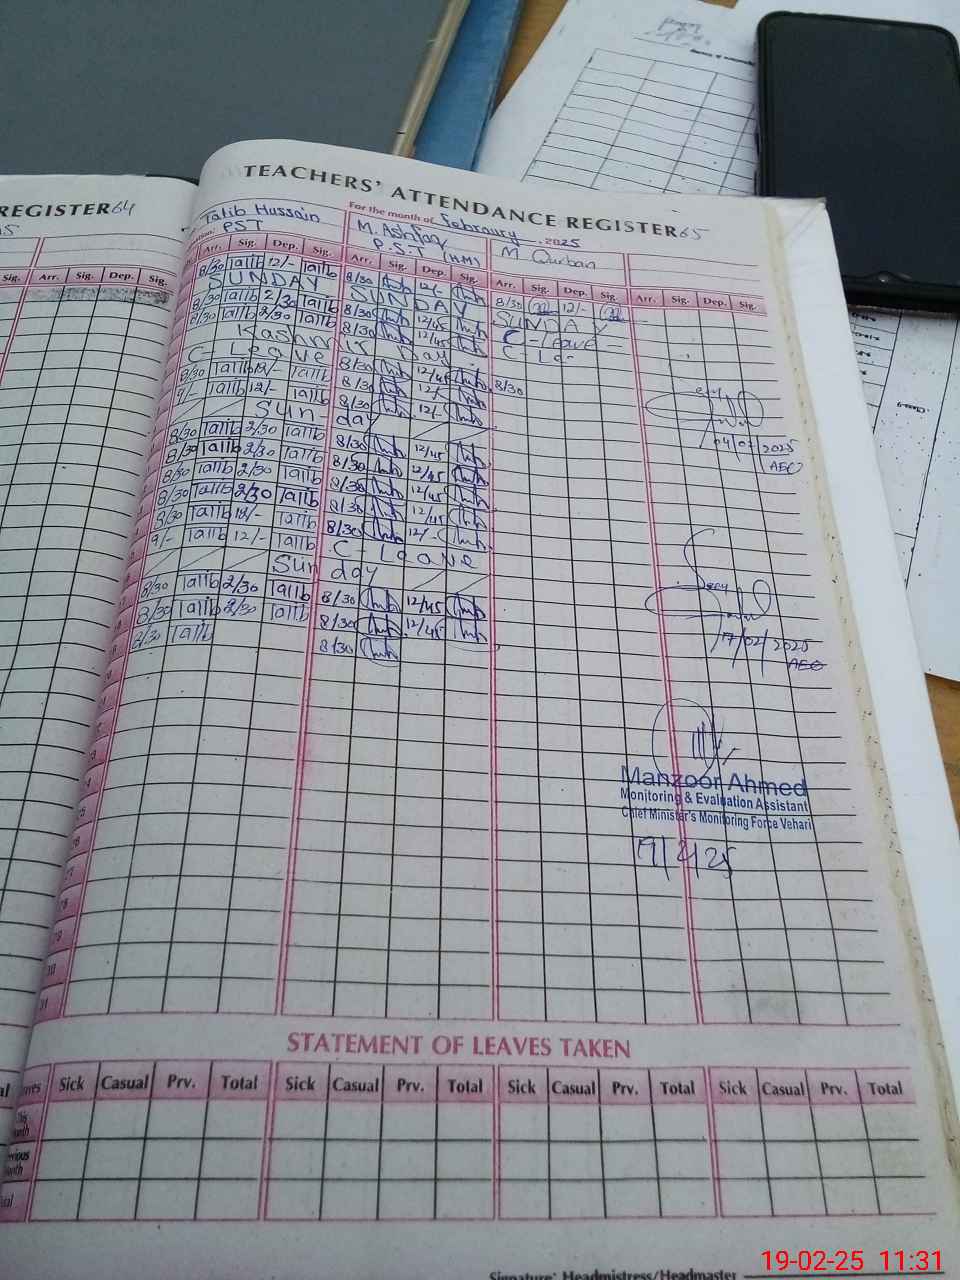 REGISTER 64
TEACHERS' ATTENDANCE REGISTER 65
For the month of Februury 2025
Talib Hussain M. Ashfaq M Qurban
PST P.S.T (HM)
Sig. Dep. Sig. Arr. Sig. Dep. Sig. Arr. Sig. Dep. Sig. Arr. Sig. Dep. Sig. Arr. Sig. Dep. Sig.
8/30 Talib 12/- Talib 8/30 12/- 8/30 12/-
SUNDAY SUNDAY SUNDAY
8/30 Talib 2/30 Talib 8/30 12/45 C-Leave
8/30 Talib 2/30 Talib 8/30 12/45 C-Le
Kashmir Day
C-Leave 8/30 12/45 8/30
8/30 Talib 12/- Talib 8/30 12/-
9/- Talib 12/- Talib 8/30 12/-
Sun day
8/30 Talib 2/30 Talib 8/30 12/45
8/30 Talib 2/30 Talib 8/30 12/45
8/30 Talib 2/30 Talib 8/30 12/45
8/30 Talib 2/30 Talib 8/30 12/45
8/30 Talib 12/- Talib 8/30 12/-
9/- Talib 12/- Talib C-Leave
Sun day
8/30 Talib 2/30 Talib 8/30 12/45
8/30 Talib 2/30 Talib 8/30 12/45
8/30 Talib 8/30
04/02/2025
AEO
Seen
17/02/2025
AEO
Manzoor Ahmed
Monitoring & Evaluation Assistant
Chief Minister's Monitoring Force Vehari
19/2/25
STATEMENT OF LEAVES TAKEN
Sick Casual Prv. Total Sick Casual Prv. Total Sick Casual Prv. Total Sick Casual Prv. Total
Signature: Headmistress/Headmaster
19-02-25 11:31